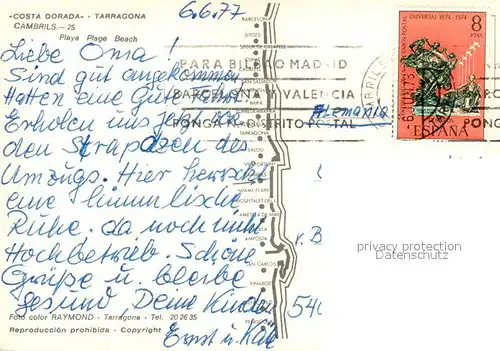 "COSTA DORADA" - TARRAGONA
CAMBRILS.—25
Playa Plage Beach
6.6.77
Liebe Oma!
Sind gut angekommen
Hatten eine gute
Erholen uns jetzt von
den Strapazen des
Umzugs. Hier herrscht
eine himmlische
Ruhe. da noch nicht
Hochbetrieb. Schöne
Grüße u. bleibe
gesund Deine Kinder
Ernst u.
Foto color RAYMOND - Tarragona - Tel. 20 26 35
Reproducción prohibida - Copyright
BARCELONA
SITGES
TARRAGONA
SALOU
MIAMI-PLAYA
HOSPITALET DEL I.
AMETLLA DE MAR
AMPOSTA
SAN CARLOS
VINAROZ
PARA BILBAO MADRID
BARCELONA VALENCIA
PONGA DISTRITO POSTAL
PONG
Alemania
CAMBRILS
6 JUN
UNION POSTAL UNIVERSAL 1874-1974
8
PTAS
ESPAÑA
v. B
540
privacy protection
Datenschutz